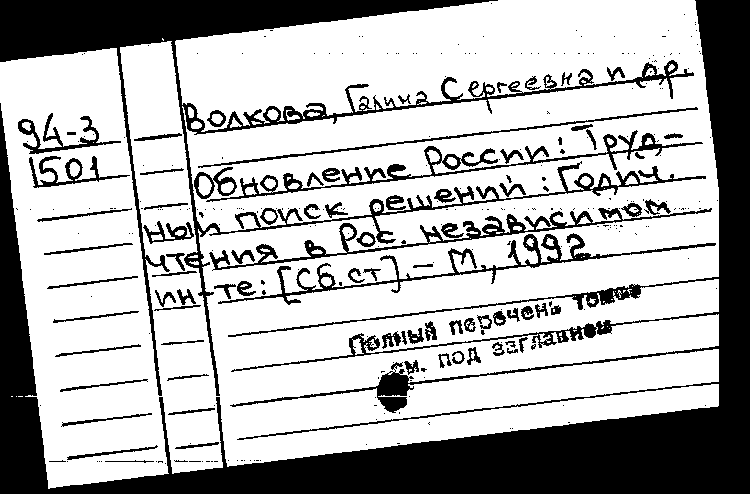 94-3
1501
Волкова, Галина Сергеевна и др.
Обновление России: Труд-
ный поиск решений: Годич.
чтения в Рос. независимом
ин-те: [Сб.ст]. – М., 1992.
Полный перечень томов
см. под заглавием